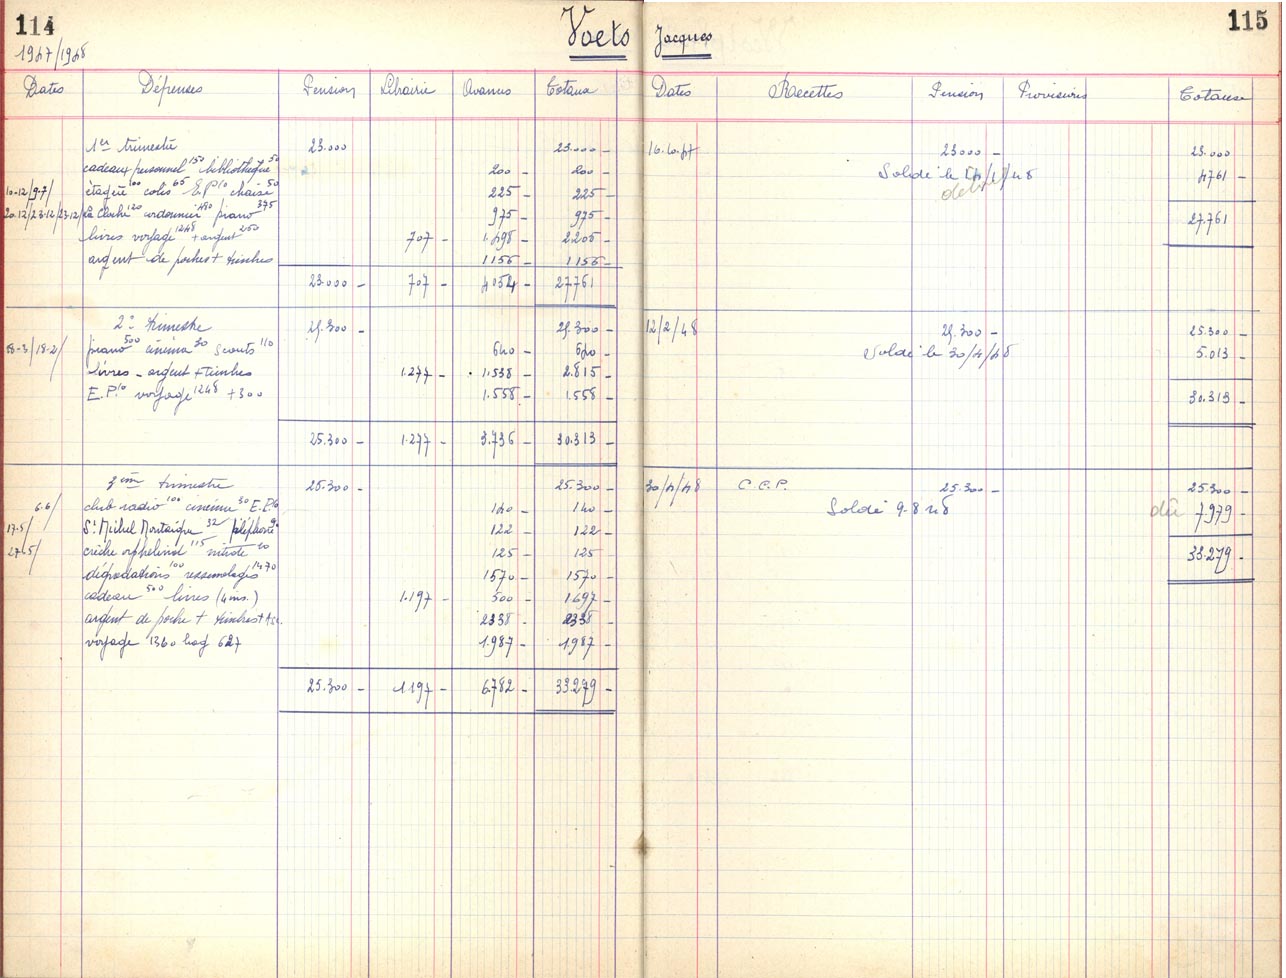 114
Voets Jacques
115
1947/1948
Dates Dépenses Pension Librairie Avances Totaux Dates Recettes Pension Provisions Totaux
1er trimestre 23.000 23.000 - 16.10.47 23000 - 23.000
cadeaux personnel 150 bibliothèque 50 200 - 200 - Soldé le /48 4761 -
10-12/9-7/ étagère 100 colis 65 E.P 10 chaise 50 225 - 225 -
20.12/23-12/23-12/ La Cloche 120 cordonnier 480 piano 375 975 - 975 - 27.761
livres voyage 1248 + argent 250 707 - 1.498 - 2.205 -
argent de poche + timbres 1156 - 1156 -
23.000 - 707 - 4054 - 27.761
2e trimestre 25.300 - 25.300 - 12/2/48 25.300 - 25.300 -
18-3/18-2/ piano 500 cinéma 30 Scouts 110 640 - 640 - Soldé le 30/4/48 5.013 -
livres - argent + timbres 1.277 - 1.538 - 2.815 -
E.P. 10 voyage 1248 + 300 1.558 - 1.558 - 30.313 -
25.300 - 1.277 - 3.736 - 30.313 -
3em trimestre 25.300 - 25.300 - 30/4/48 C.C.P. 25.300 - 25.300 -
6.6/ club radio 100 cinéma 30 E.P. 10 140 - 140 - Soldé 9.8.48 dû 7.979 -
17.5/ St Michel Montaigu 32 téléphone 122 - 122 -
27.5/ crèche orphelinat 115 10 125 - 125 - 33.279 -
dégradations 100 ressemelages 1470 1570 - 1570 -
cadeau 500 livres (4 ms.) 1.197 - 500 - 1.697 -
argent de poche + timbres + 2338 - 2338 -
voyage 1360 627 1.987 - 1.987 -
25.300 - 1.197 - 6.782 - 33.279 -